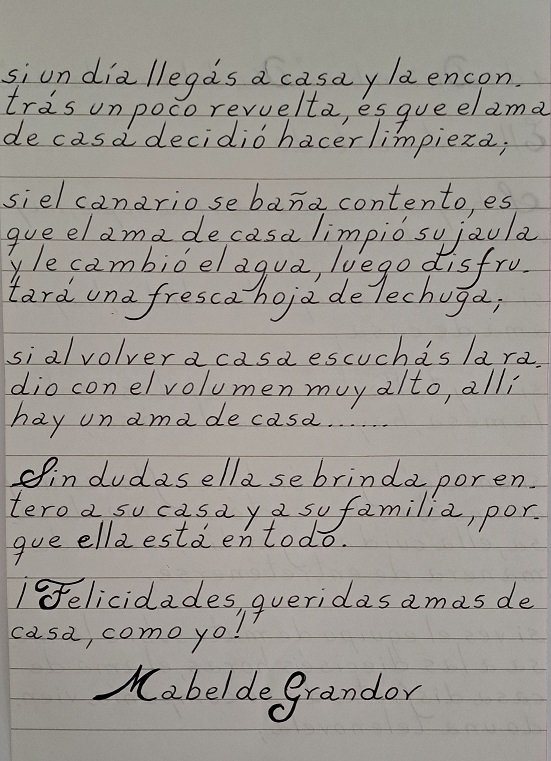 si un día llegás a casa y la encon-
trás un poco revuelta, es que el ama
de casa decidió hacer limpieza;
si el canario se baña contento, es
que el ama de casa limpió su jaula
y le cambió el agua, luego disfru-
tará una fresca hoja de lechuga;
si al volver a casa escuchás la ra-
dio con el volumen muy alto, allí
hay un ama de casa.......
Sin dudas ella se brinda por en-
tero a su casa y a su familia, por-
que ella está en todo.
¡Felicidades, queridas amas de
casa, como yo!
Mabel de Grandov